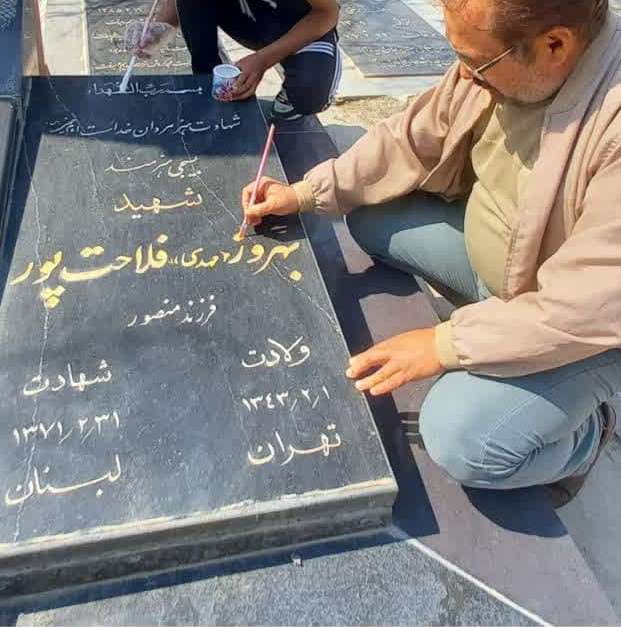 بسم رب الشهداء
شهادت هنر مردان خداست
بسیجی هنرمند
شهید
بهروز «مهدی» فلاحت پور
فرزند منصور
ولادت
۱۳۴۳٫۲٫۱
تهران
شهادت
۱۳۷۱٫۲٫۳۱
لبنان